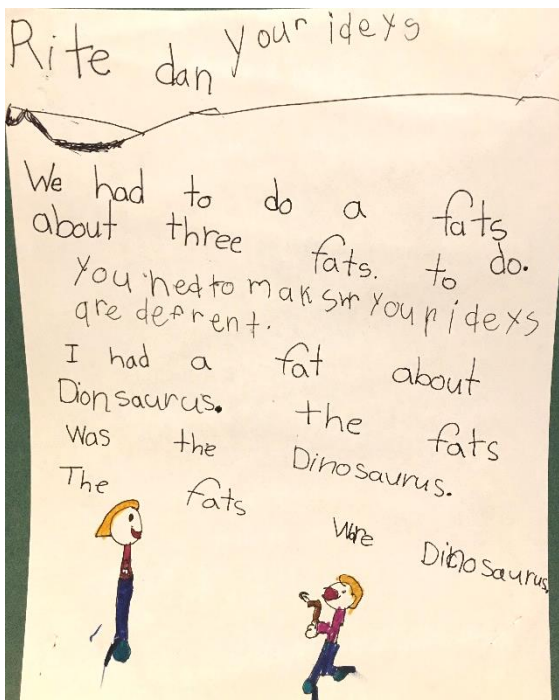 Rite dan your ideys
We had to do a fats
about three fats. to do.
you hed to mak sur your ideys
are defrent.
I had a fat about
Dionsaurus. the fats
Was the Dinosaurus.
The fats Ware Dinosaurus.